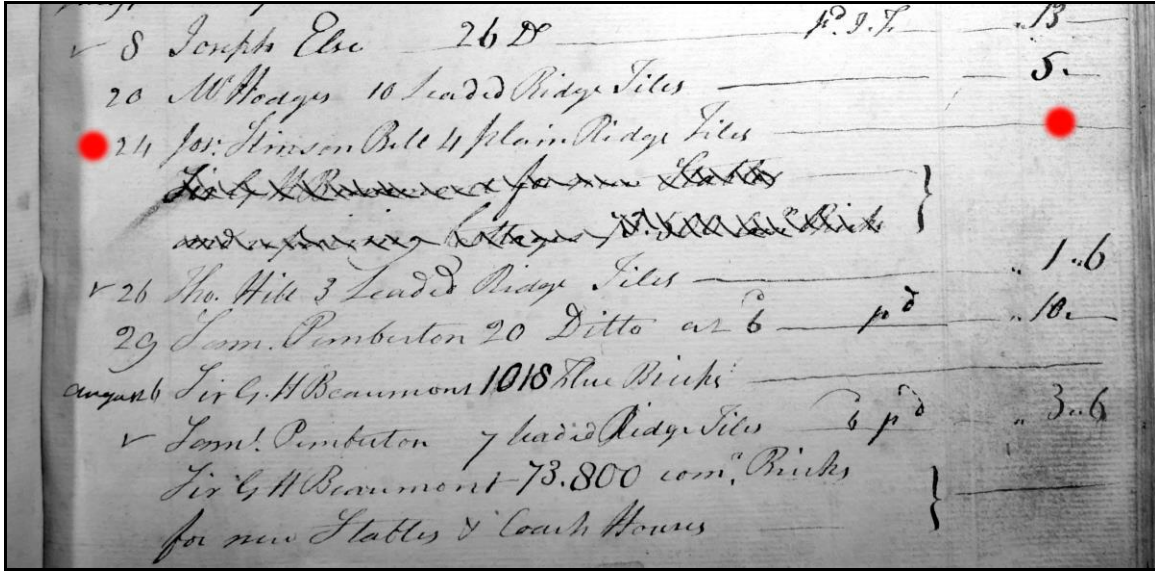 8 Joseph Else 26 Do pd. J.F. „13
20 Mr Hodges 10 Leaded Ridge Tiles 5.
24 Jos: Stinson Bill 4 plain Ridge Tiles
Sir G H Beaumont for new Stables
and Cottages
26 Tho. Hill 3 Leaded Ridge Tiles „ 1„6
29 Sam. Pemberton 20 Ditto at 6 pd „10.
August 6 Sir G. H Beaumont 1018 Flue Bricks
Saml. Pemberton 7 leaded Ridge Tiles 6 pd „ 3„6
Sir G H Beaumont 73.800 comn. Bricks
for new Stables & Coach Houses